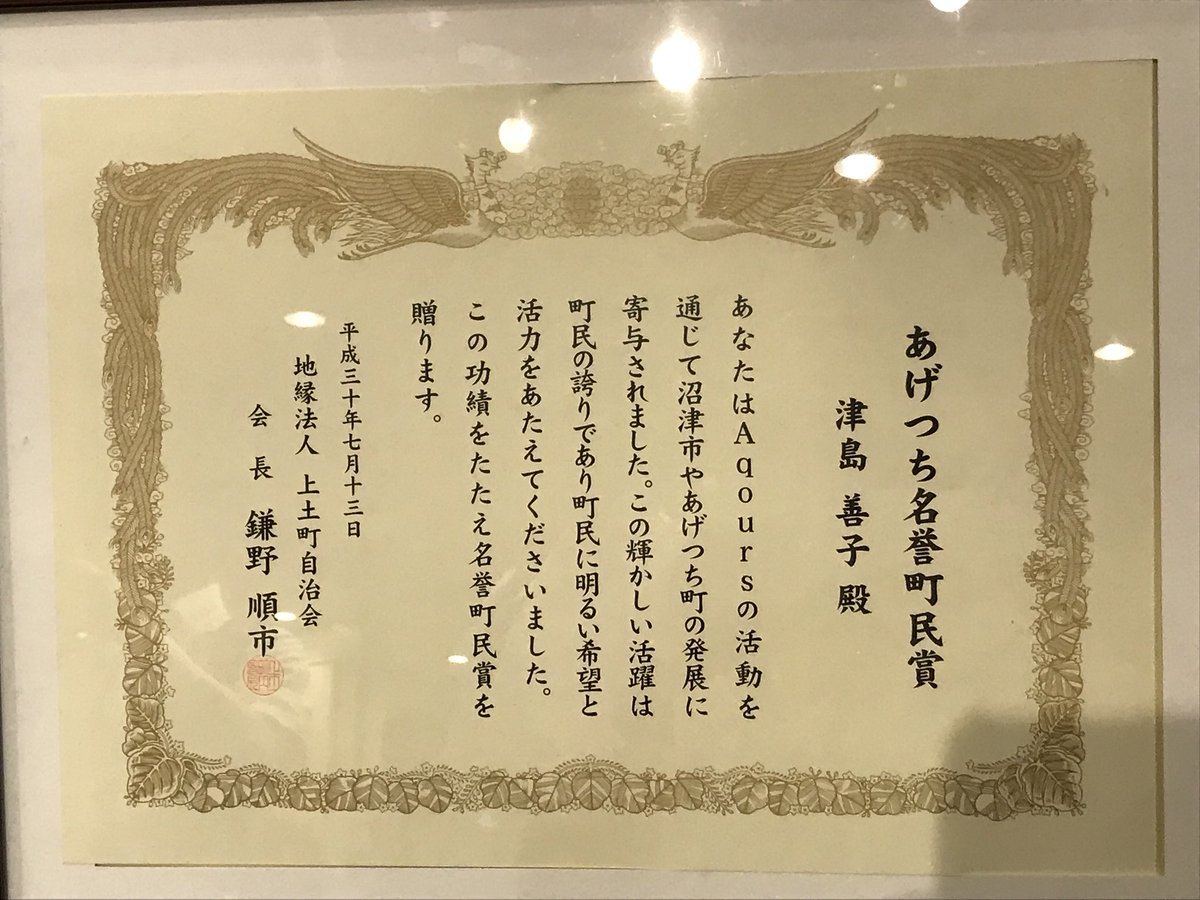 あげつち名誉町民賞
津島 善子 殿
あなたはAqoursの活動を
通じて沼津市やあげつち町の発展に
寄与されました。この輝かしい活躍は
町民の誇りであり町民に明るい希望と
活力をあたえてくださいました。
この功績をたたえ名誉町民賞を
贈ります。
平成三十年七月十三日
地縁法人 上土町自治会
会長 鎌野 順市